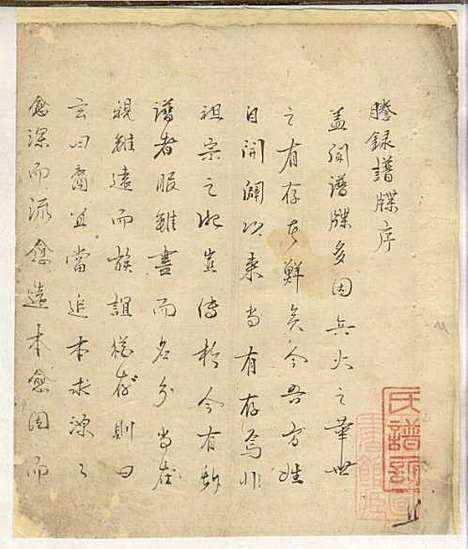 謄録譜牒序
盖聞譜牒多因兵火之華世
之有存者鮮矣今吾方姓
自開闢以来尚有存焉非
祖宗之此豈傳於今有斯
譜者服雖盡而名分尚在
親雖遠而族誼猶存則曰
玄曰裔且當追本求源之
愈深而流愈遠本愈固而
氏譜
書館